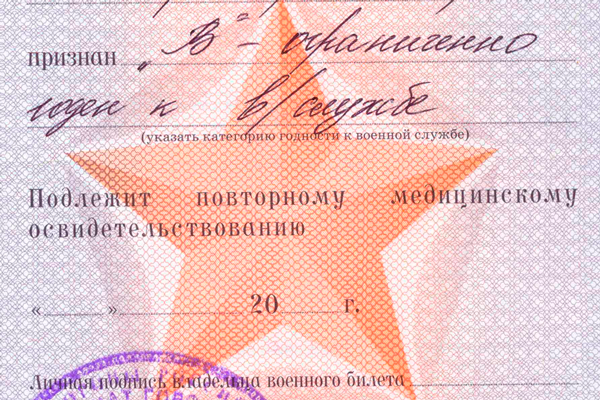 признан „В" – ограниченно
годен к в/службе
(указать категорию годности к военной службе)
Подлежит повторному медицинскому
освидетельствованию
« » 20 г.
Личная подпись владельца военного билета